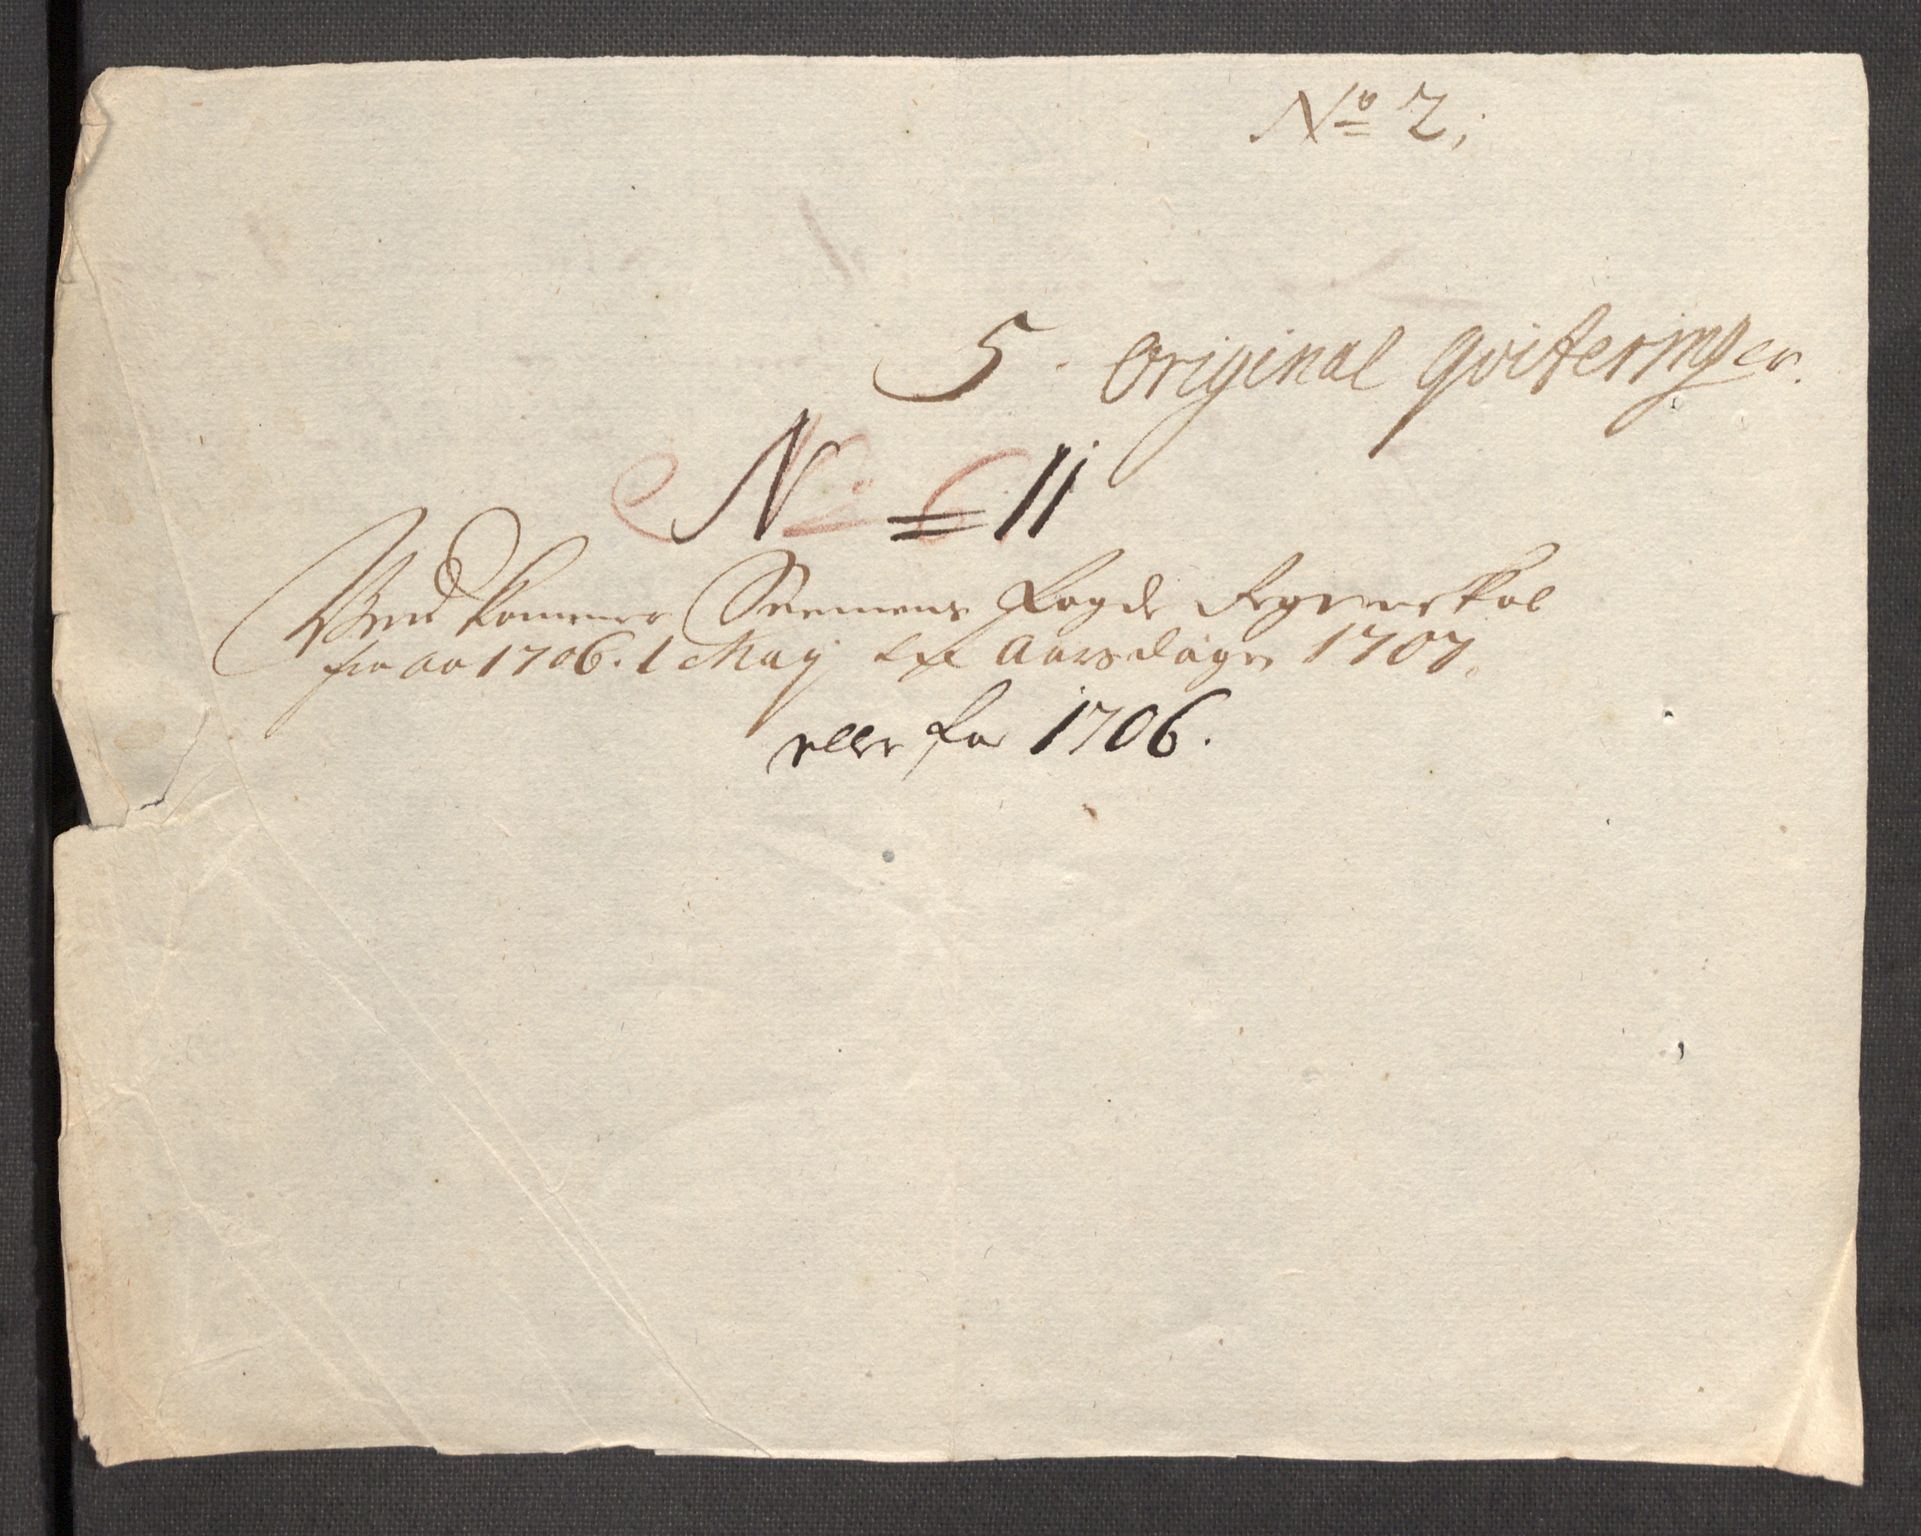 No 2,
5 · Original qviteringer.
No 11
Ved kommer Senniens Fogde Regnenskab
fra ao 1706. 1 May til Aarsdagen 1707.
eller for 1706.